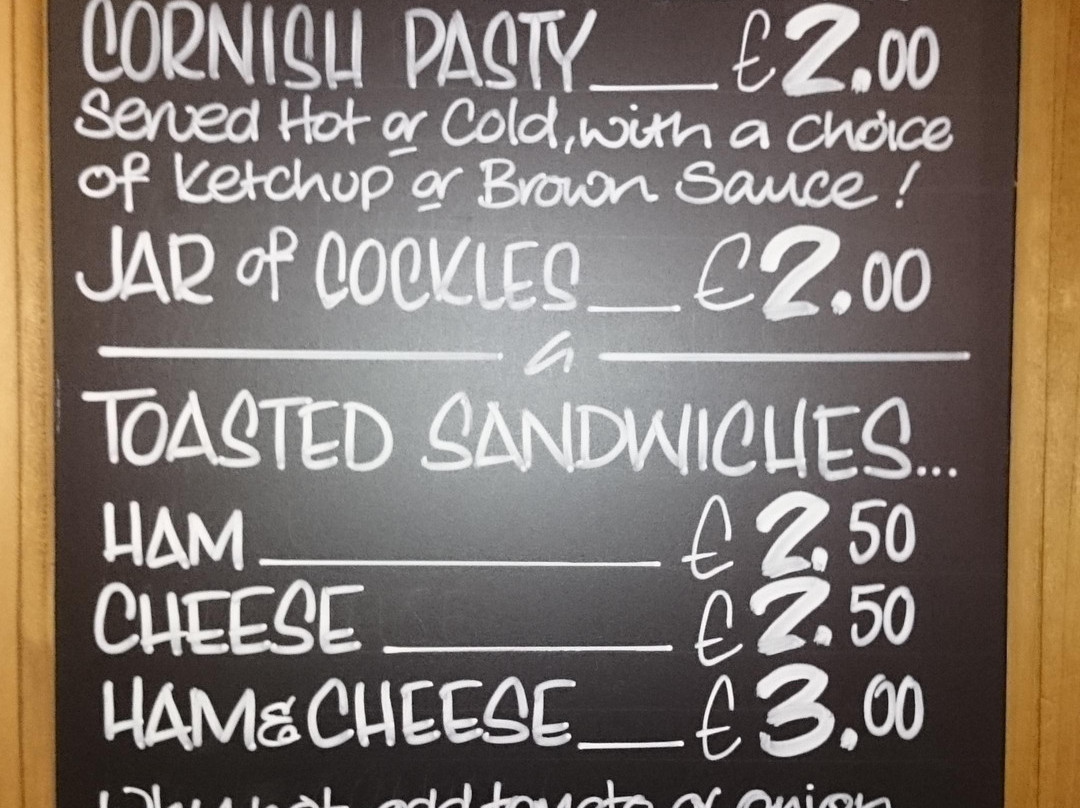 CORNISH PASTY £2.00
Served Hot or Cold, with a choice
of Ketchup or Brown Sauce!
JAR of COCKLES £2.00
TOASTED SANDWICHES...
HAM £2.50
CHEESE £2.50
HAM & CHEESE £3.00
Why not add tomato or onion